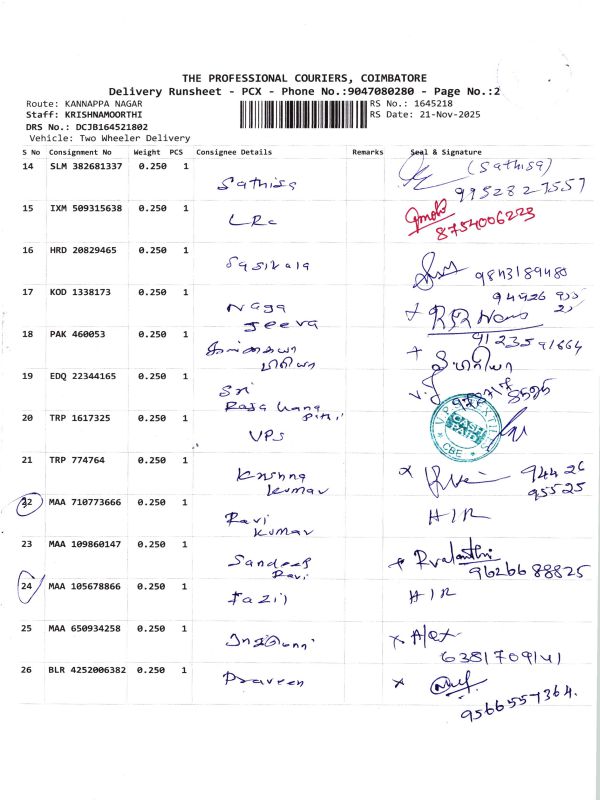 THE PROFESSIONAL COURIERS, COIMBATORE
Delivery Runsheet - PCX - Phone No.:9047080280 - Page No.:2
Route: KANNAPPA NAGAR
RS No.: 1645218
Staff: KRISHNAMOORTHI
RS Date: 21-Nov-2025
DRS No.: DCJB164521802
Vehicle: Two Wheeler Delivery
S No Consignment No Weight PCS Consignee Details Remarks Seal & Signature
14 SLM 382681337 0.250 1 Sathisa (Sathisa)
9952827557
15 IXM 509315638 0.250 1 LRC
8754006223
16 HRD 20829465 0.250 1 Sasikala 9843189480
17 KOD 1338173 0.250 1 Naga Jeeva
94426
18 PAK 460053 0.250 1
9123591664
19 EDQ 22344165 0.250 1 Sri
20 TRP 1617325 0.250 1 VPS
CASH PAID
CBE
21 TRP 774764 0.250 1 Krishna Kumar
94426
95525
22 MAA 710773666 0.250 1 Ravi Kumar H/R
23 MAA 109860147 0.250 1 Sandeep Ravi Rvalanthi
9626688825
24 MAA 105678866 0.250 1 Fazil H/R
25 MAA 650934258 0.250 1 x Alex
6381709141
26 BLR 4252006382 0.250 1 Praveen x
9566557364.